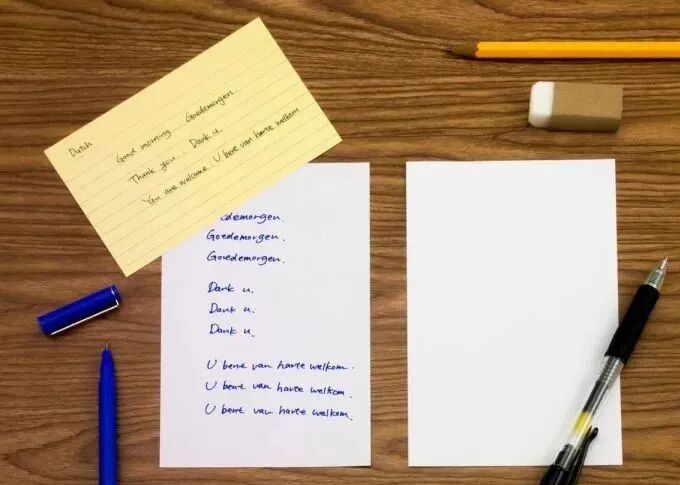 Dutch
Good morning. Goedemorgen.
Thank you. Dank u.
You are welcome. U bent van harte welkom
edemorgen.
Goedemorgen.
Goedemorgen.
Dank u.
Dank u.
Dank u.
U bent van harte welkom.
U bent van harte welkom.
U bent van harte welkom.